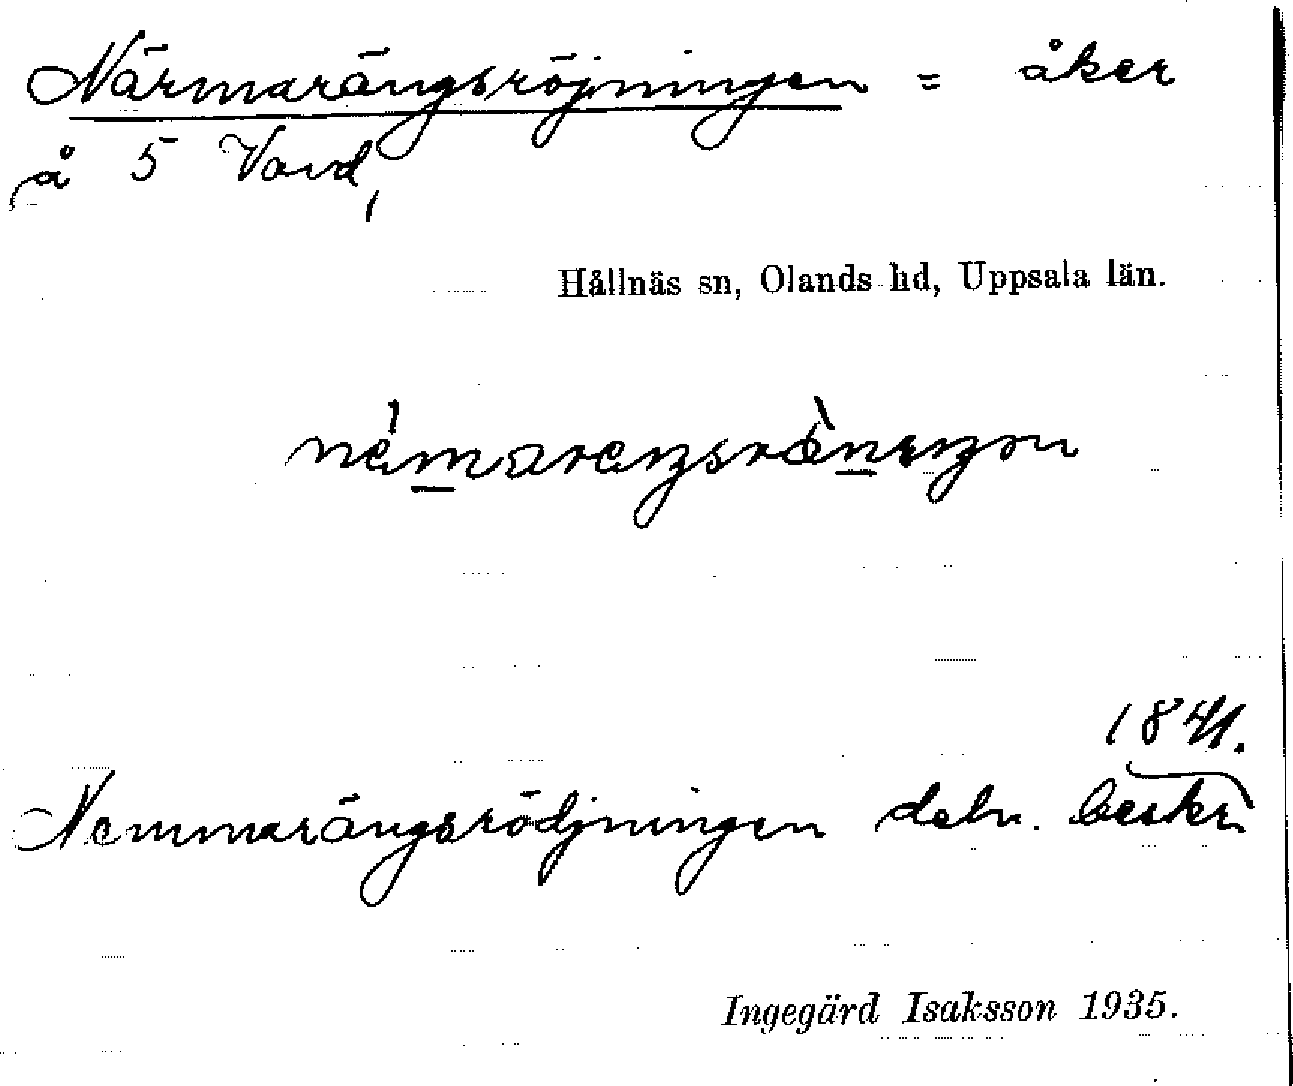 Närmarängsröjningen = åker
å 5 Vavd,
Hållnäs sn, Olands hd, Uppsala län.
1841.
Nemmarängsrödjningen deln. beskr.
Ingegärd Isaksson 1935.